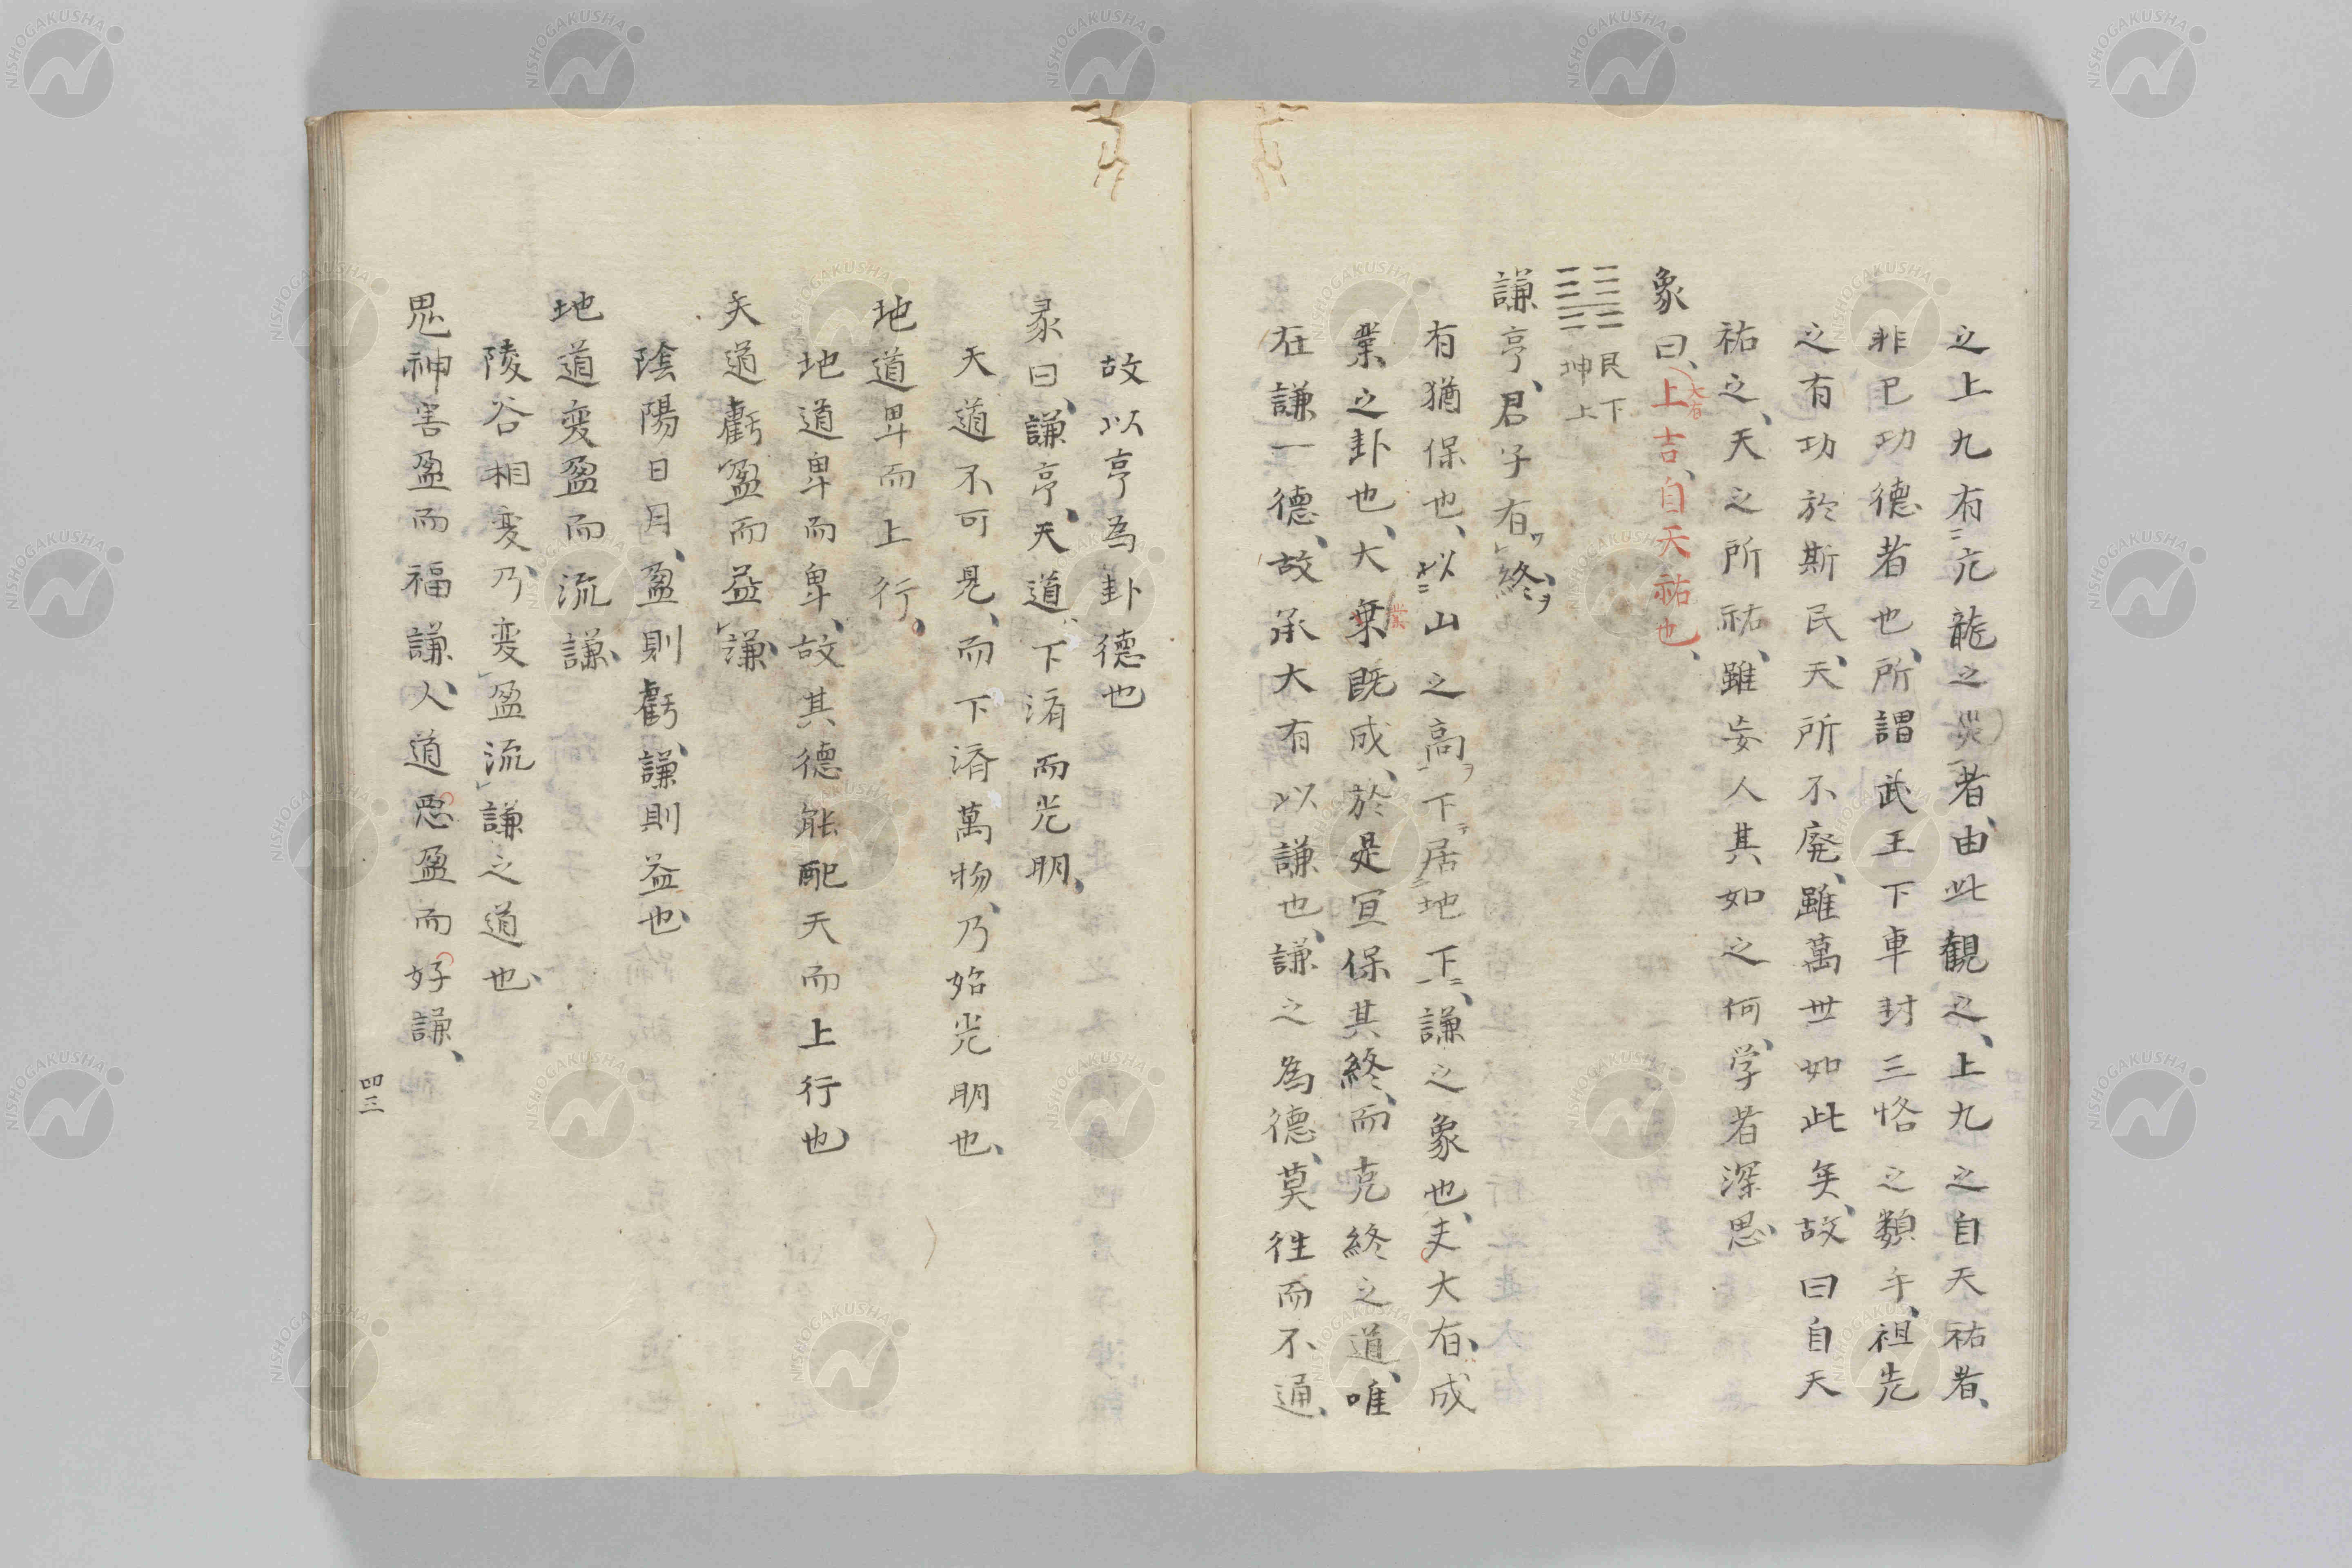 之上九有亢龍之災者、由此観之、上九之自天祐者、
非己功德者也、所謂武王下車封三恪之類乎、祖先
之有功於斯民、天所不廃、雖萬世如此矣、故曰自天
祐之、天之所祐、雖妄人其如之何、学者深思、
象曰、大有上吉、自天祐也、
艮下
坤上
謙亨、君子有終、
有猶保也、以山之高下居地下、謙之象也、夫大有、成
業之卦也、大業既成、於是宜保其終、而克終之道、唯
在謙一德、故承大有以謙也、謙之為德、莫往而不通、
故以亨為卦德也
彖曰、謙亨、天道、下済而光明、
天道不可見、而下済萬物、乃始光明也、
地道卑而上行、
地道卑而卑、故其德能配天而上行也、
天道虧盈而益謙、
陰陽日月、盈則虧、謙則益也、
地道変盈而流謙、
陵谷相変、乃変盈流謙之道也、
鬼神害盈而福謙、人道悪盈而好謙、
四三
NISHOGAKUSHA